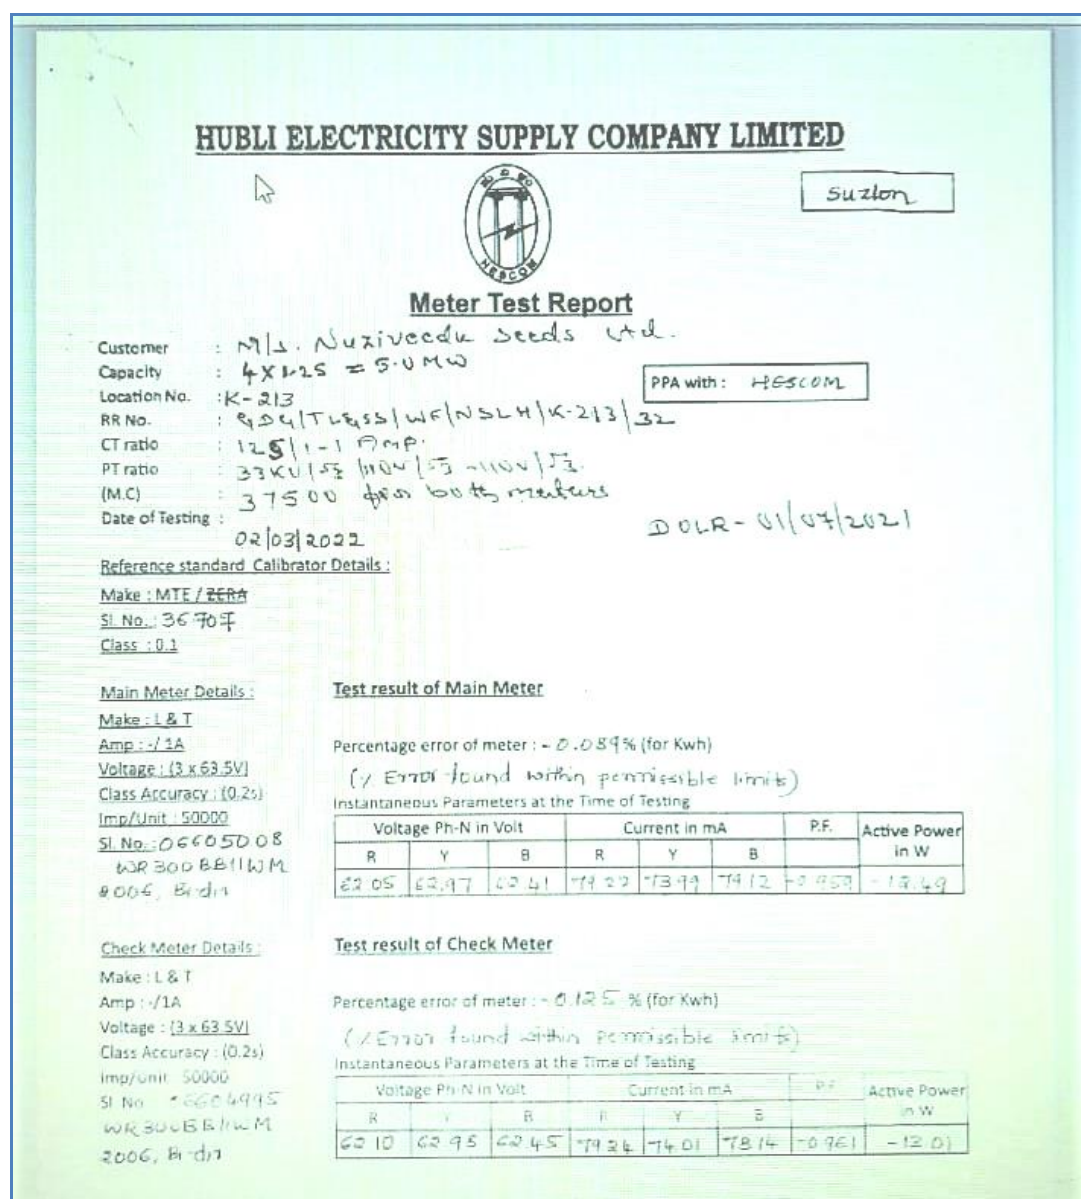 HUBLI ELECTRICITY SUPPLY COMPANY LIMITED
Suzlon
HESCOM
Meter Test Report
Customer : M/s. Nuziveedu Seeds Ltd.
Capacity : 4X1.25 = 5.0MW
PPA with : HESCOM
Location No. : K-213
RR No. : GDG/TL&SS/WF/NSLH/K-213/32
CT ratio : 125/1-1 Amp.
PT ratio : 33KV/√3 /110V/√3 -110V/√3.
(M.C) : 37500 for both meters
Date of Testing : 02/03/2022
DOLR- 01/07/2021
Reference standard Calibrator Details :
Make : MTE / ZERA
Sl. No. : 36707
Class : 0.1
Main Meter Details :
Make : L & T
Amp : -/ 1A
Voltage : (3 x 63.5V)
Class Accuracy : (0.2s)
Imp/Unit : 50000
Sl. No. : 06605008
WR300BB11WM
2006,
Test result of Main Meter
Percentage error of meter : - 0.089% (for Kwh)
(% Error found within permissible limits)
Instantaneous Parameters at the Time of Testing
Voltage Ph-N in Volt Current in mA P.F. Active Power in W
R Y B R Y B
62.05 62.97 62.41 79.22 73.99 79.12
Check Meter Details :
Make : L & T
Amp : -/1A
Voltage : (3 x 63.5V)
Class Accuracy : (0.2s)
Imp/Unit 50000
Sl No 06604995
WR300BB11WM
2006,
Test result of Check Meter
Percentage error of meter : - 0.125 % (for Kwh)
(% Error found within permissible limits)
Instantaneous Parameters at the Time of Testing
Voltage Ph-N in Volt Current in mA P.F Active Power in W
R Y B R Y B
62.10 62.95 62.45 79.24 74.01 78.14 -0.961 -13.01